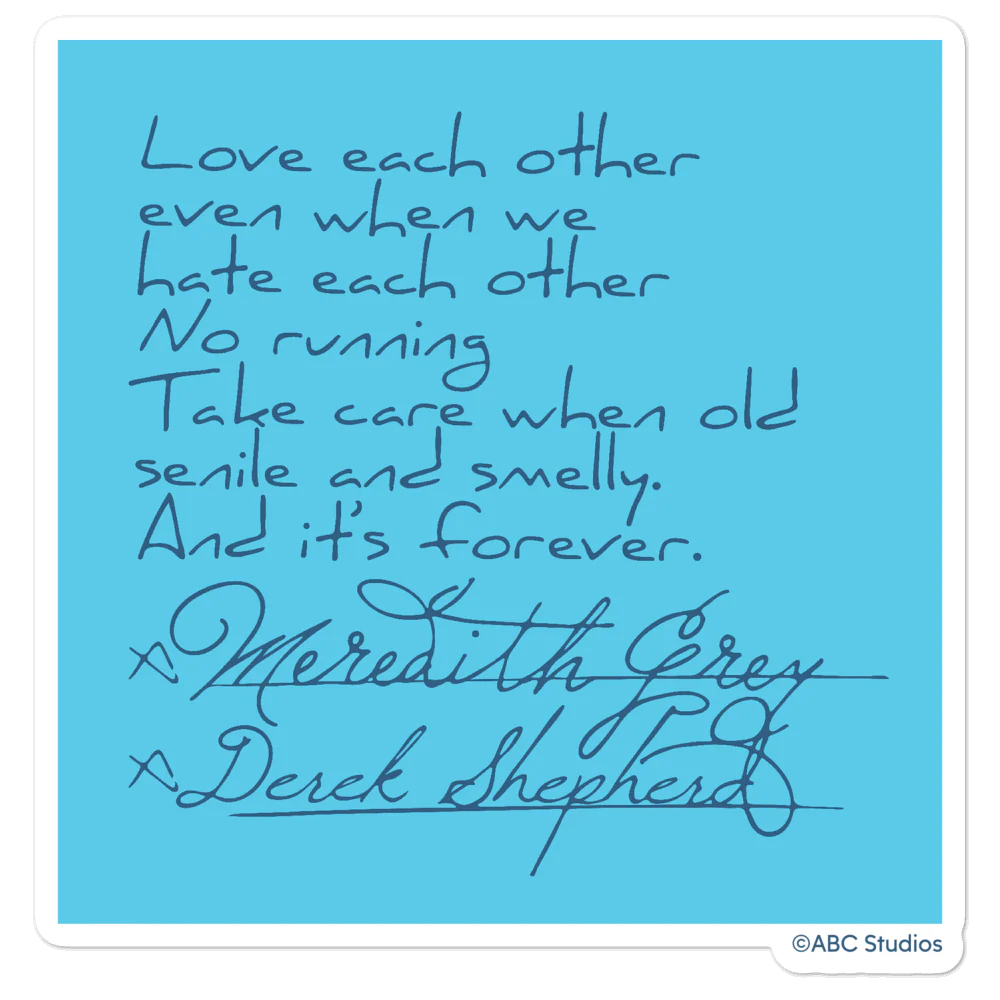 Love each other
even when we
hate each other
No running
Take care when old
senile and smelly.
And it's forever.
x Meredith Grey
x Derek Shepherd
©ABC Studios